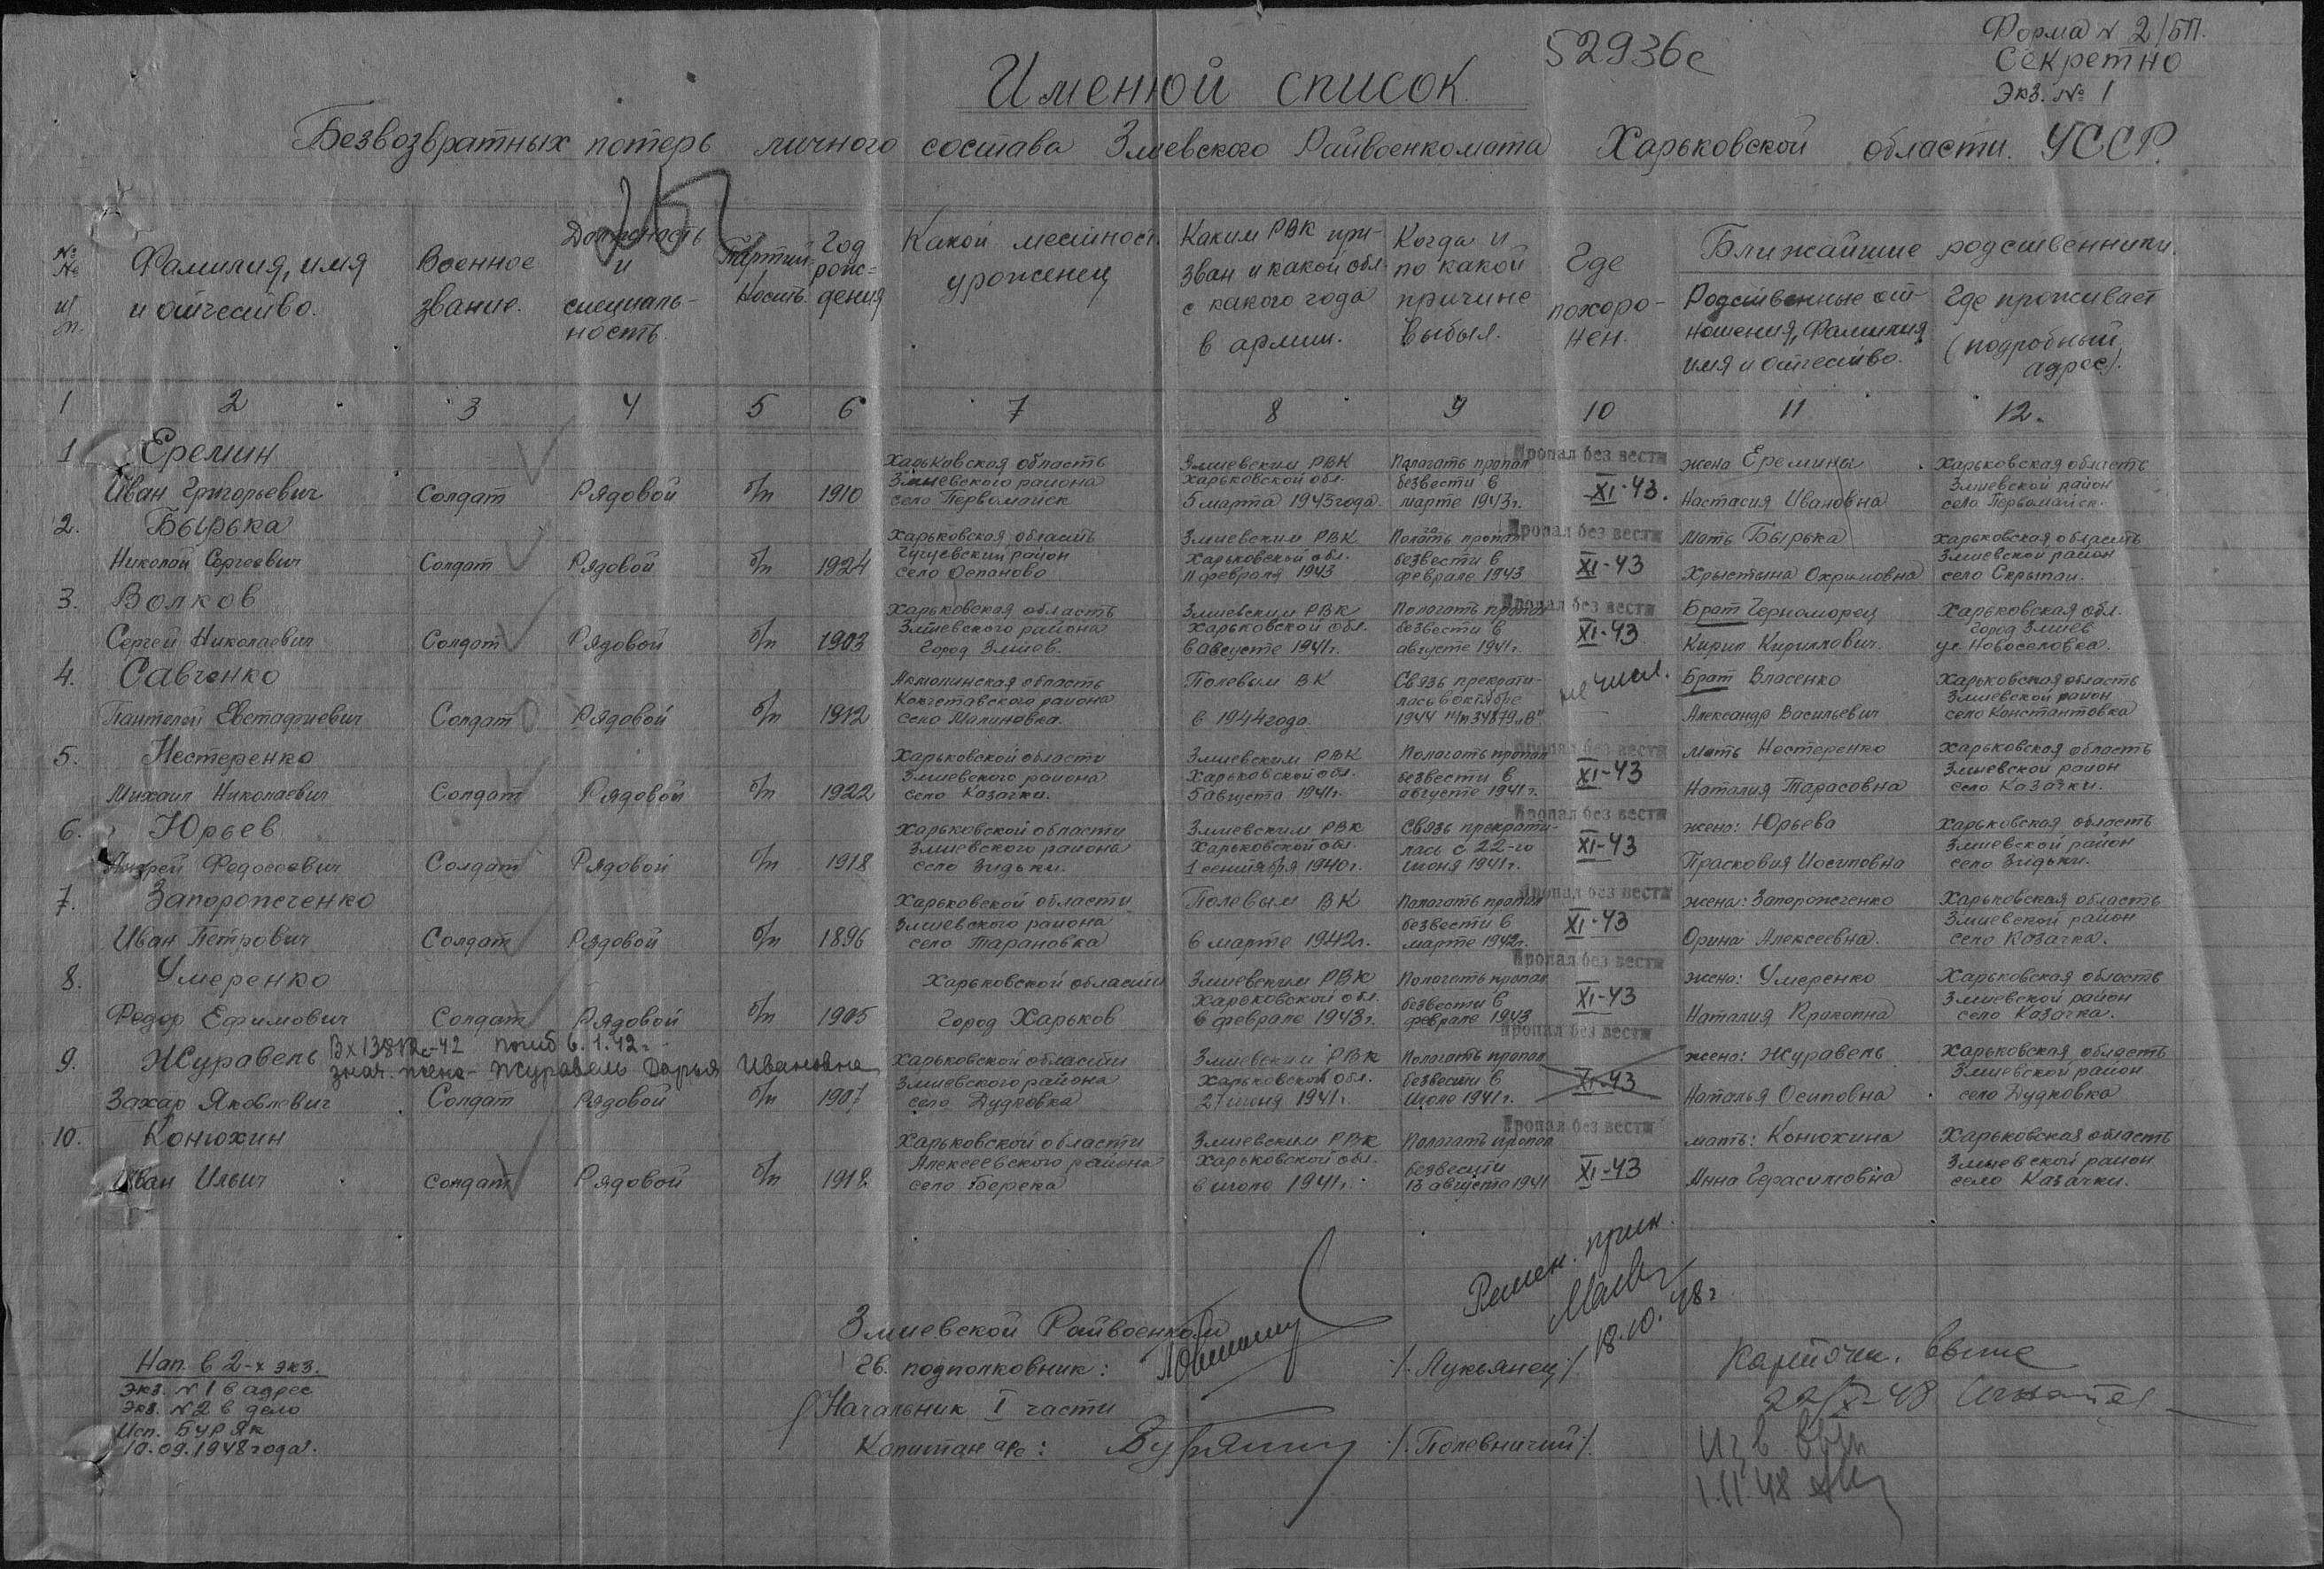 52936с
Форма № 2/БП.
Секретно
Экз. № 1
Именной список
Безвозвратных потерь личного состава Змиевского Райвоенкомата Харьковской области УССР.
№№ п/п.
Фамилия, имя и отчество.
Военное звание.
Должность и специальность.
Партийность.
Год рождения
Какой местност. уроженец
Каким РВК призван и какой обл. с какого года в армии.
Когда и по какой причине выбыл.
Где похоронен.
Ближайшие родственники.
Родственные отношения, Фамилия имя и отчество.
Где проживает (подробный адрес).
1 2 3 4 5 6 7 8 9 10 11 12.
1 Еремин Иван Григорьевич
Солдат Рядовой б/п 1910
Харьковская область Змиевского района село Первомайск
Змиевским РВК Харьковской обл. 5 марта 1943 года.
Полагать пропал безвести в марте 1943 г.
Пропал без вести XI-43.
жена Еремина Настасия Ивановна
Харьковская область Змиевской район село Первомайск.
2. Бырька Николай Сергеевич
Солдат Рядовой б/п 1924
Харьковская область Чугуевский район село Осланово
Змиевским РВК Харьковской обл. 11 февраля 1943
Полагать пропал безвести в феврале 1943
Пропал без вести XI-43
Мать Бырька Хрыстына Охримовна
Харьковская область Змиевской район село Скрыпаи.
3. Волков Сергей Николаевич
Солдат Рядовой б/п 1903
Харьковская область Змиевского района Город Змиев.
Змиевским РВК Харьковской обл. в августе 1941 г.
Полагать пропал безвести в августе 1941 г.
Пропал без вести XI-43
Брат Черноморец Кирил Кириллович.
Харьковская обл. Город Змиев ул. Новоселовка.
4. Савченко Пантелей Евстафиевич
Солдат Рядовой б/п 1912
Акмолинская область Кокчетавского района село Малиновка.
Полевым ВК в 1944 года
Связь прекратилась в октябре 1944 п/п 34879 „В"
не числ.
Брат Власенко Александр Васильевич
Харьковская область Змиевской район село Константовка
5. Нестеренко Михаил Николаевич
Солдат Рядовой б/п 1922
Харьковской области Змиевского района село Казачка.
Змиевским РВК Харьковской обл. 5 августа 1941 г.
Полагать пропал безвести в августе 1941 г.
Пропал без вести XI-43
Мать Нестеренко Наталия Тарасовна
Харьковская область Змиевской район село Казачки.
6. Юрьев Андрей Федосеевич
Солдат Рядовой б/п 1918
Харьковской области Змиевского района село Зидьки.
Змиевским РВК Харьковской обл. 1 сентября 1940 г.
Связь прекратилась с 22-го июня 1941 г.
Пропал без вести XI-43
жена: Юрьева Прасковия Иосиповна
Харьковская область Змиевской район село Зидьки.
7. Запорожченко Иван Петрович
Солдат Рядовой б/п 1896
Харьковской области Змиевского района село Тарановка
Полевым ВК в марте 1942 г.
Полагать пропал безвести в марте 1942 г.
Пропал без вести XI-43
жена: Запорожченко Орина Алексеевна.
Харьковская область Змиевской район село Казачка.
8. Умеренко Федор Ефимович
Солдат Рядовой б/п 1905
Харьковской области Город Харьков
Змиевским РВК Харьковской обл. в феврале 1943 г.
Полагать пропал безвести в феврале 1943
Пропал без вести XI-43
жена: Умеренко Наталия Прокопна
Харьковская область Змиевской район село Казачка.
9. Журавель Захар Яковлевич
погиб 6.1.42 г.
жена - Журавель Дарья Ивановна
Солдат Рядовой б/п 1907
Харьковской области Змиевского района село Дудковка
Змиевским РВК Харьковской обл. 27 июня 1941 г.
Полагать пропал безвести в июле 1941 г.
Пропал без вести XI-43
жена: Журавель Наталья Осиповна
Харьковская область Змиевской район село Дудковка
10. Конюхин Иван Ильич
солдат Рядовой б/п 1918
Харьковской области Алексеевского района село Берека
Змиевским РВК Харьковской обл. в июле 1941 г.
Полагать пропал безвести 13 августа 1941
Пропал без вести XI-43
мать: Конюхина Анна Герасимовна
Харьковская область Змиевской район село Казачки.
18.10.48 г
Змиевской Райвоенком
Гв. подполковник: /.Лукьянец/
Начальник I части
Капитан а/с: /.Полевничий/.
Нап. в 2-х экз.
Экз. №1 в адрес
Экз. №2 в дело
Исп. Буряк
10.09.1948 года.
22/X-48
1.11.48